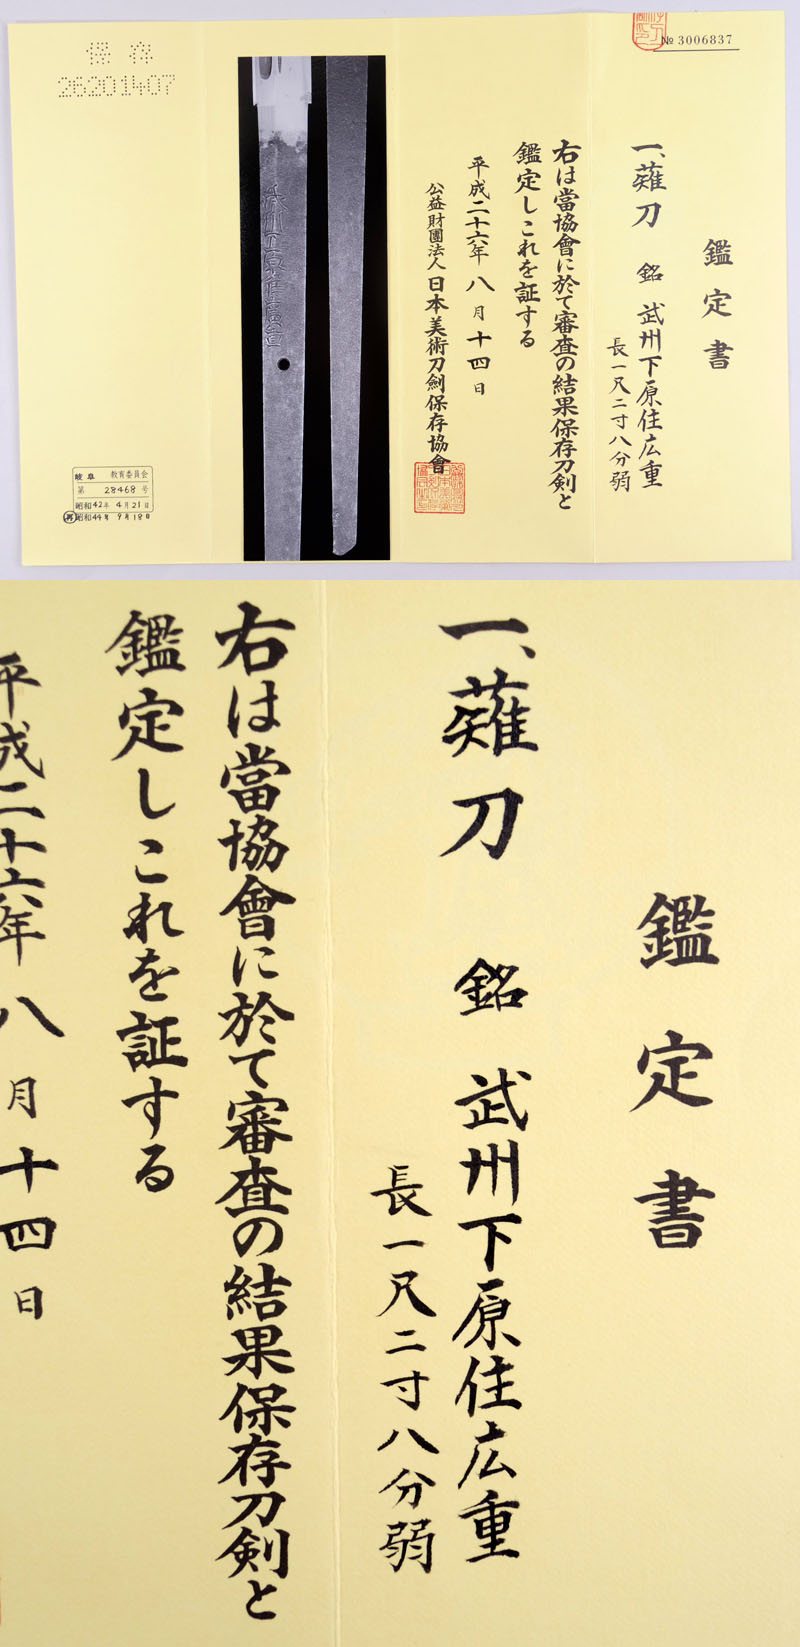 № 3006837
鑑定書
一、薙刀 銘 武州下原住広重
長一尺二寸八分弱
右は當協會に於て審査の結果保存刀剣と
鑑定しこれを証する
平成二十六年八月十四日
公益財團法人日本美術刀劍保存協會
保存
26201407
岐阜 教育委員会
第 28468 号
昭和42年 4月21日
再 昭和44年 9月18日
鑑定書
一、薙刀 銘 武州下原住広重
長一尺二寸八分弱
右は當協會に於て審査の結果保存刀剣と
鑑定しこれを証する
平成二十六年八月十四日